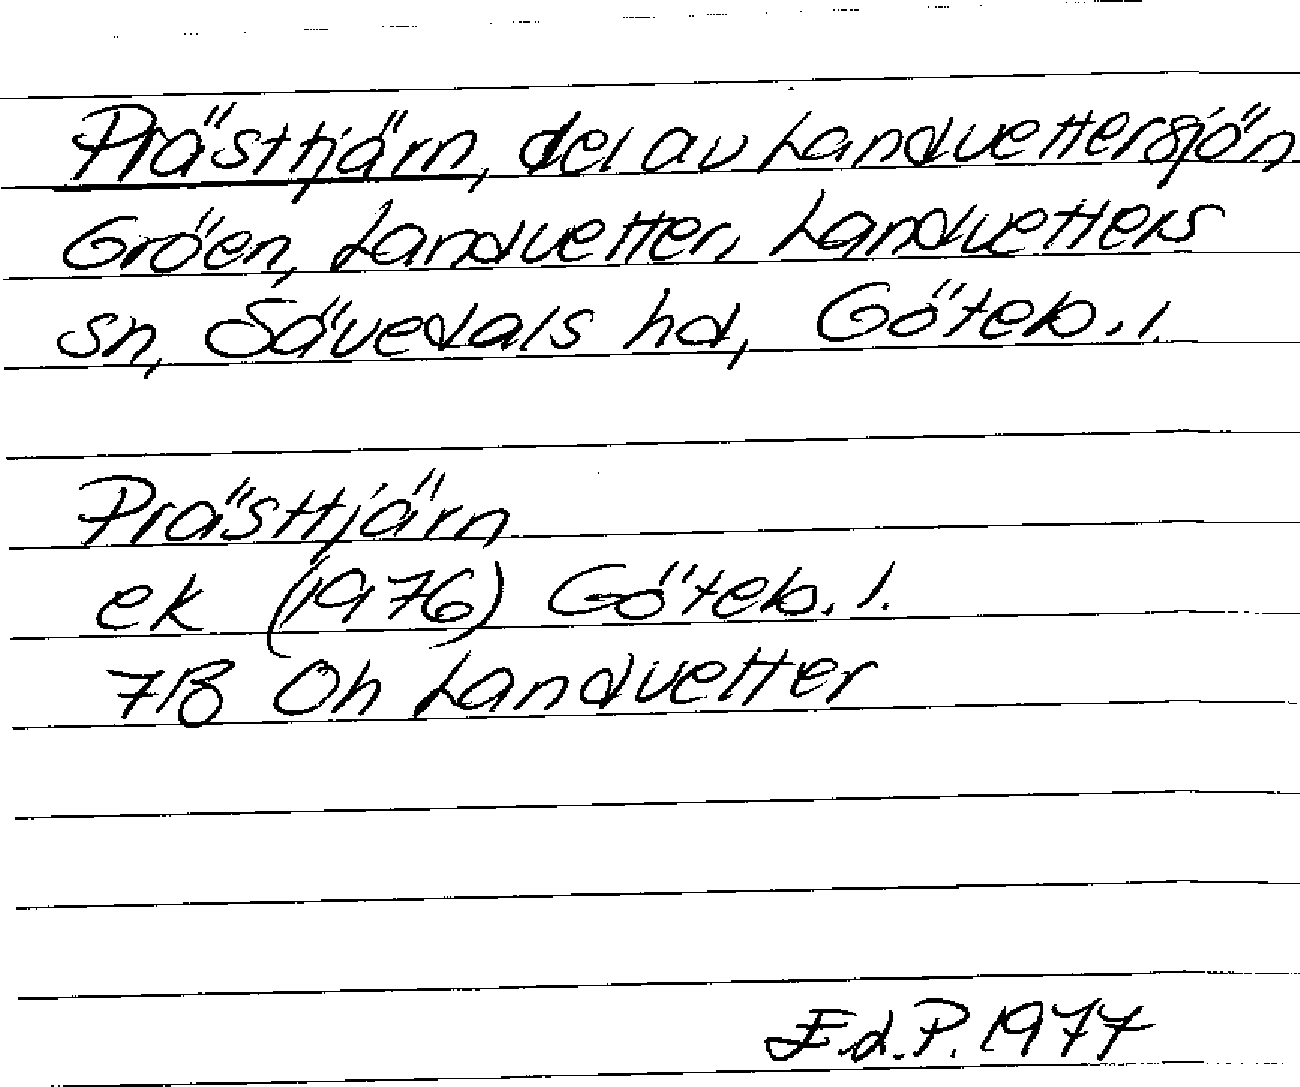 Prästtjärn, del av Landvettersjön
Gröen, Landvetter, Landvetters
sn, Sävedals hd, Göteb. l.
Prästtjärn
ek (1976) Göteb. l.
7B Oh Landvetter
E.d.P. 1977